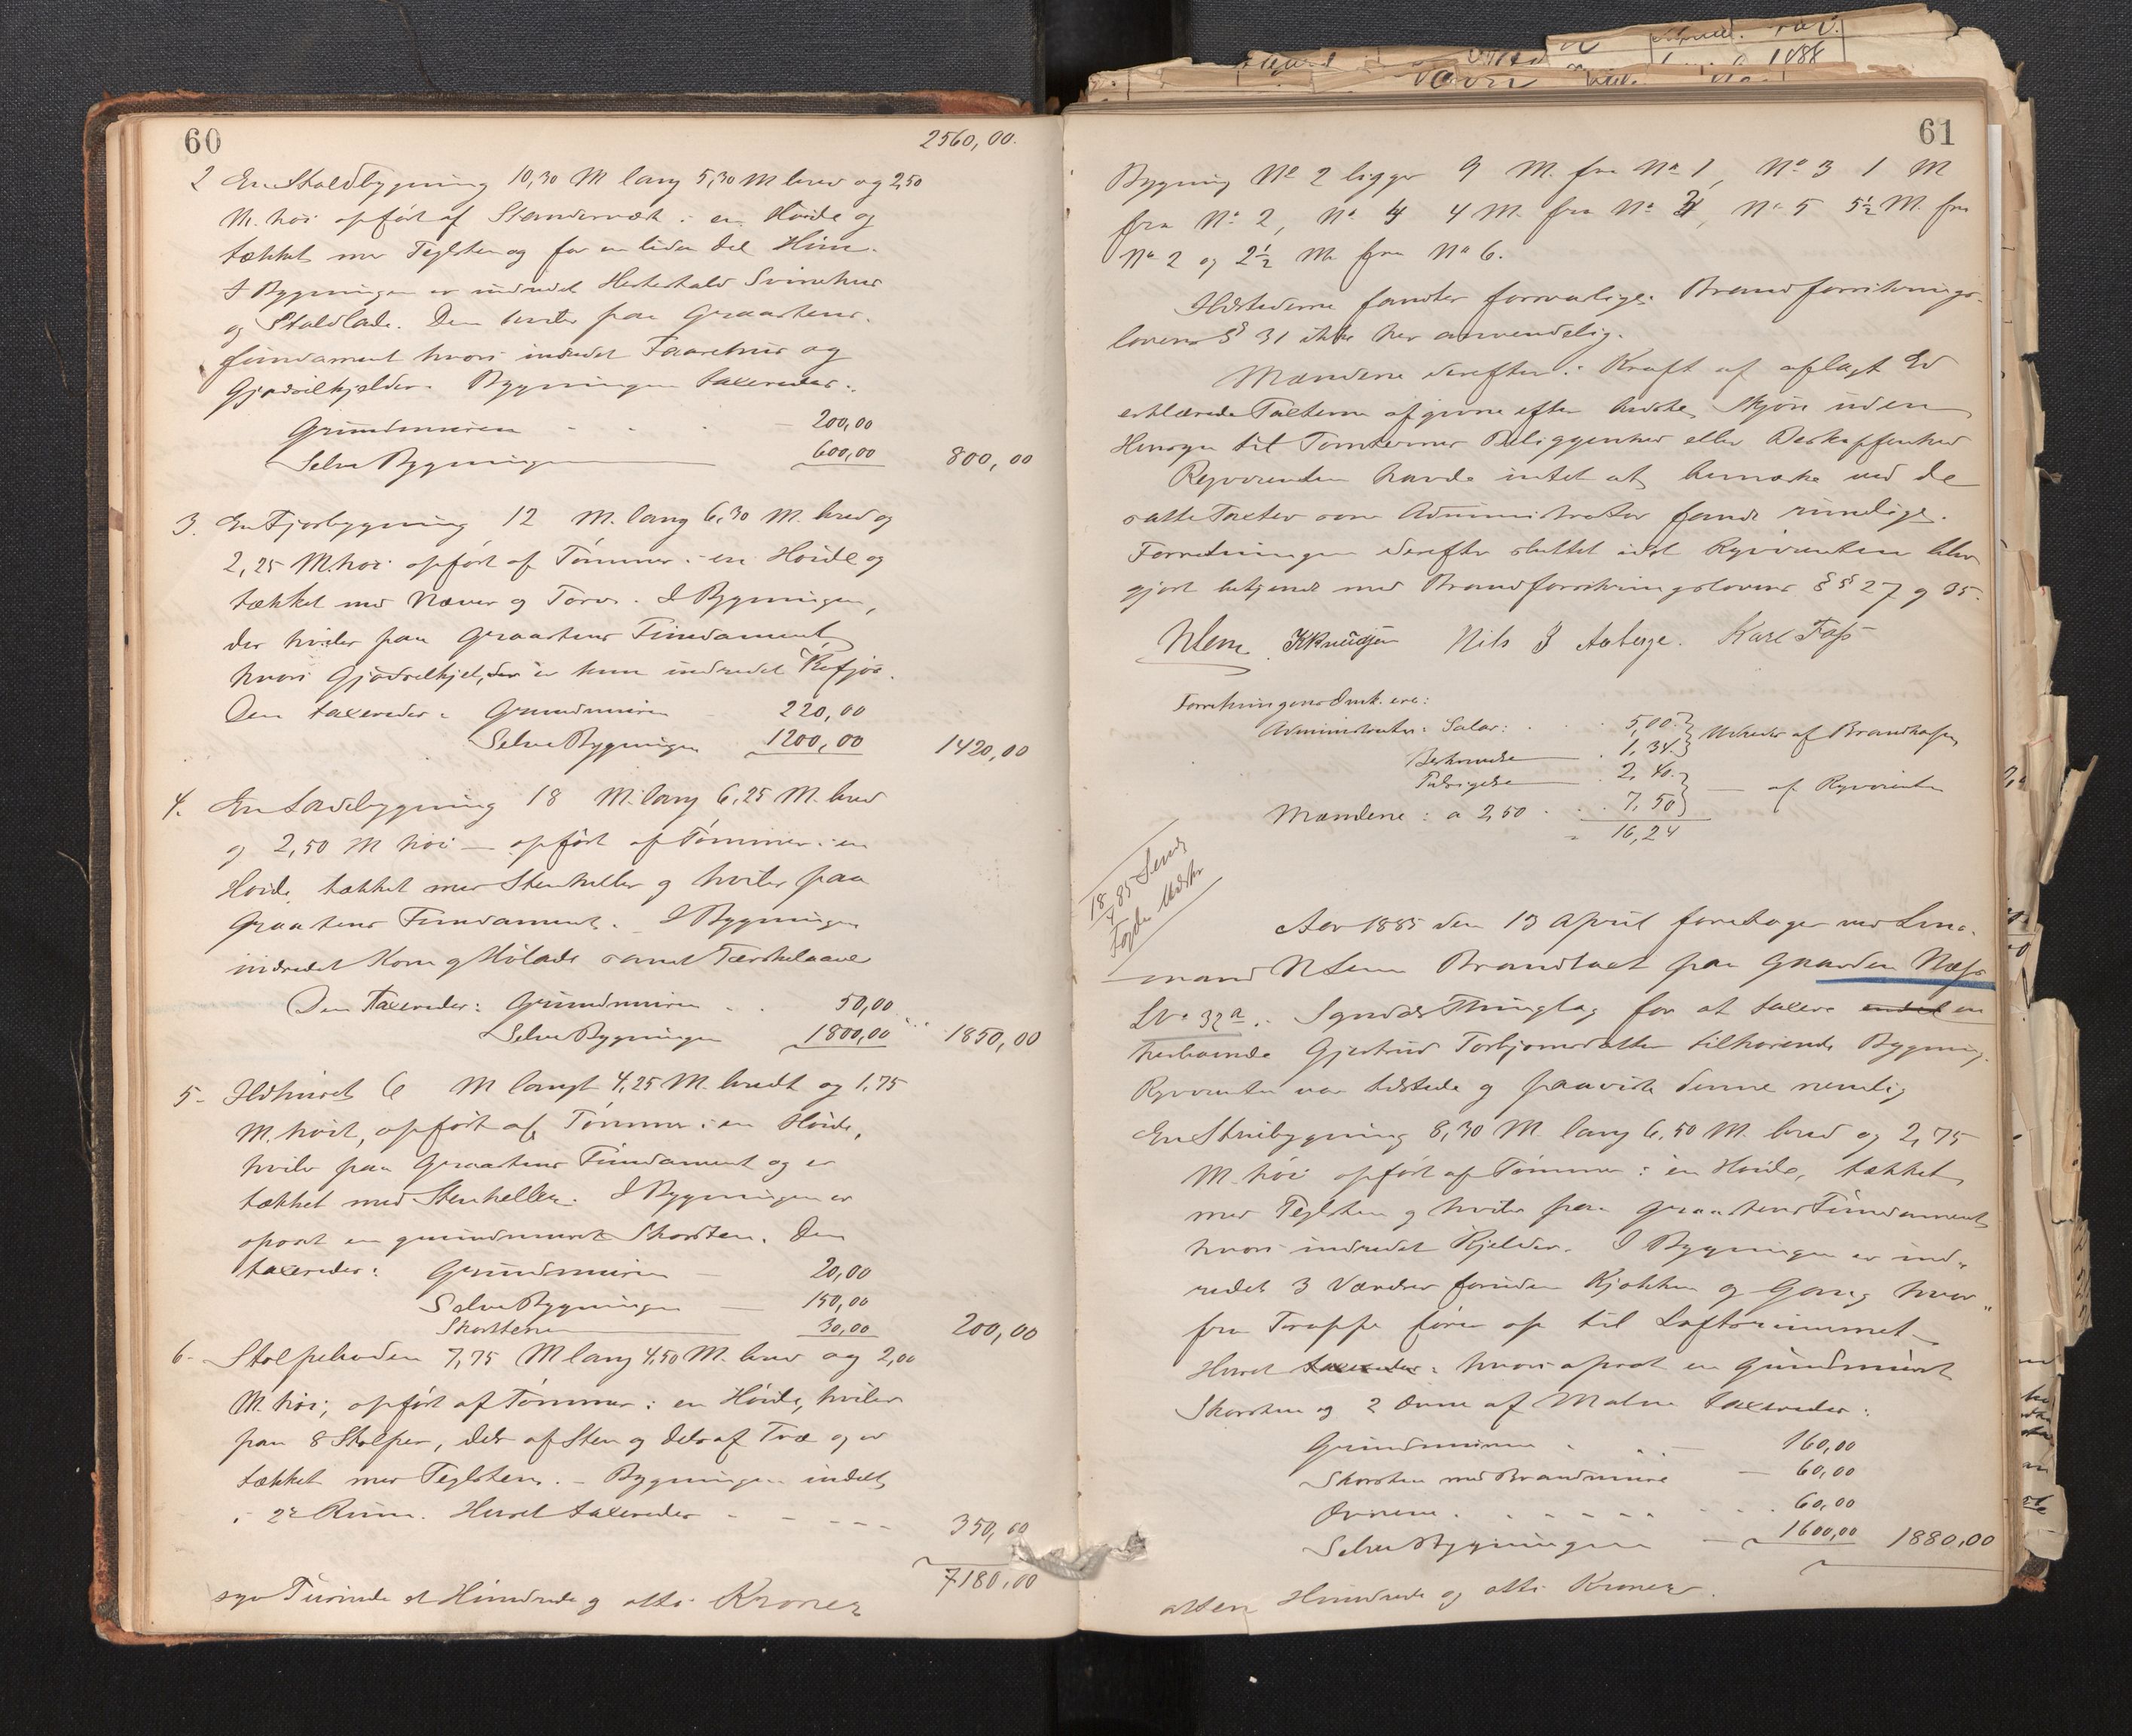 60
2560,00.
2 En Staldbygning 10,30 M lang 5,30 M bred og 2,50
M. høi opført af Stænderværk i en Høide og
tækket med Teglsten og for en liden del Himr.
I Bygningen er indredet Hestestald Svinehus
og Staldlade. Den hviler paa Graastens
fundament hvori indredet Faarehus og
Gjødselkjelder. Bygningen taxeredes:
Grundmuren 200,00
Selve Bygningen 600,00 800,00
3. En Fjøsbygning 12 M. lang 6,30 M. bred og
2,25 M. høi opført af Tømmer i en Høide og
tækket med Næver og Torv. I Bygningen,
der hviler paa Graastens Fundament
hvori Gjødselkjelder er kun indredet Kufjøs.
Den taxeredes: Grundmuren 220,00
Selve Bygningen 1200,00 1420,00
4. En Ladebygning 18 M. lang 6,25 M. bred
og 2,50 M høi — opført af Tømmer i en
Høide, tækket med Stenheller og hviler paa
Graastens Fundament. I Bygningen
indredet Korn og Hølade samt Tærskelaave
Den taxeredes: Grundmuren 50,00
Selve Bygningen 1800,00 1850,00
5. Ildhuset 6 M langt 4,25 M. bredt og 1,75
M. høit, opført af Tømmer i en Høide,
hviler paa Graastens Fundament og er
tækket med Stenheller. I Bygningen er
opsat en grundmuret Skorsten. Den
taxeredes: Grundmuren — 20,00
Selve Bygningen — 150,00
Skorstenen 30,00 200,00
6. Stolpeboden 7,75 M lang 4,50 M. bred og 2,00
M. høi, opført af Tømmer i en Høide, hviler
paa 8 Stolper, dels af Sten og dels af Træ og er
tækket med Teglsten. — Bygningen indelt
i 2de Rum. Huset taxeredes 350,00
7180,00
syv Tusinde et Hundrede og otti Kroner
61
Bygning No 2 ligger 9 M. fra No 1, No 3 1 M
fra No 2, No 4 4 M. fra No 3, No 5 5½ M. fra
No 2 og 2½ M. fra No 6.
Ildstederne fandtes forsvarlige. Brandforsikrings-
lovens § 31 ikke her anvendelig.
Mændene derefter i Kraft af aflagt Ed
erklærede Taxterne afgivne efter bedste Skjøn uden
Hensyn til Tomternes Beliggenhed eller Beskaffenhed
Rekvirenten havde intet at bemærke ved de
satte Taxter som Administrator fandt rimelige.
Forretningen derefter sluttet idet Rekvirenten blev
gjort bekjendt med Brandforsikringslovens §§ 27 og 35.
NLem KKnudsen Nils J Aaberge. Karl Foss
Forretningens Omk. ere:
Administrator: Salær: 5,00 } Udredes af Brandkassen
Beskrivelse 1,34
2,40 } — af Rekvirenten
Mændene: a 2,50 7,50
16,24
18/4 85 Sendt
Fogden
Aar 1885 den 13 April foretoges ved Lens-
mand NLem Brandtaxt paa Gaarden Næss
LNo 32a i Syndals Thinglag for at taxere endel en
herboende Gjertrud Torbjørnsdatter tilhørende Bygning.
Rekvirenten var tilstede og paaviste denne nemlig
En Stuebygning 8,30 M. lang 6,50 M. bred og 2,75
M. høi opført af Tømmer i en Høide, tækket
med Teglsten og hviler paa Graastens Fundament
hvori indredet Kjelder. I Bygningen er ind-
redet 3 Værelser foruden Kjøkken og Gang hvor-
fra Trappe fører op til Loftsrummet
Huset taxeredes: hvori opsat en grundmuret
Skorsten og 2 Ovne af Malm taxeredes:
Grundmuren 160,00
Skorsten med Brandmure — 60,00
Ovnene 60,00
Selve Bygningen — 1600,00 1880,00
atten Hundrede og otti Kroner.